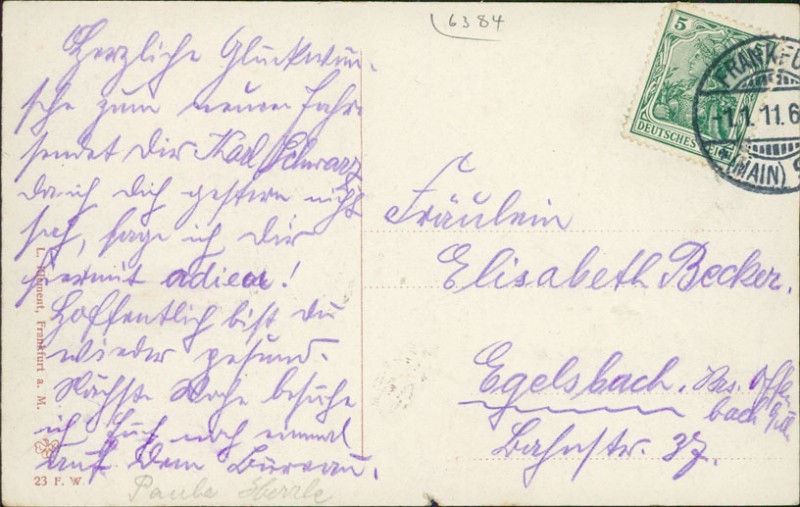 6384
Herzliche Glückwün-
sche zum neuen Jahr
sendet Dir Karl Schwarz
da ich Dich gestern nicht
sah, sage ich Dir
hiermit adieu!
Hoffentlich bist Du
wieder gesund.
Nächste Woche besuche
ich Euch noch einmal
auf dem Bureau.
5
DEUTSCHES REICH
FRANKFU
-1.1.11.6
(MAIN)
Fräulein
Elisabeth Becker.
Egelsbach. Bez. Offen
bach
Bahnstr. 37.
L. Klement, Frankfurt a. M.
23 F. W